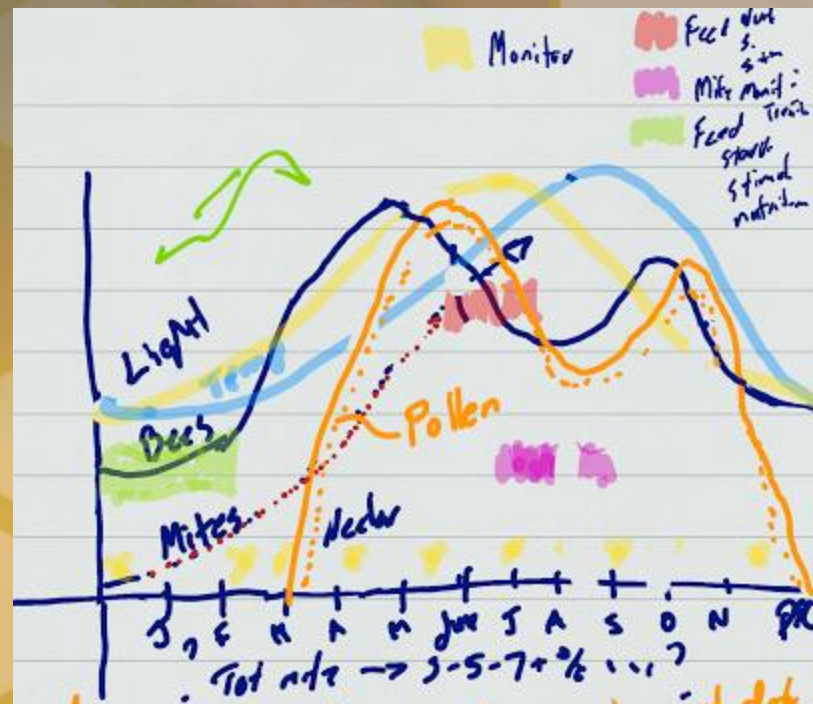 Monitor
Feed
s.
stm
Mite Monit:
Feed
stimul
nutrition
Light
Temp
Bees
Pollen
Mites
Nectar
J, F M A M June J A S O N DEC
Tot mite → 3-5-7+% ...?